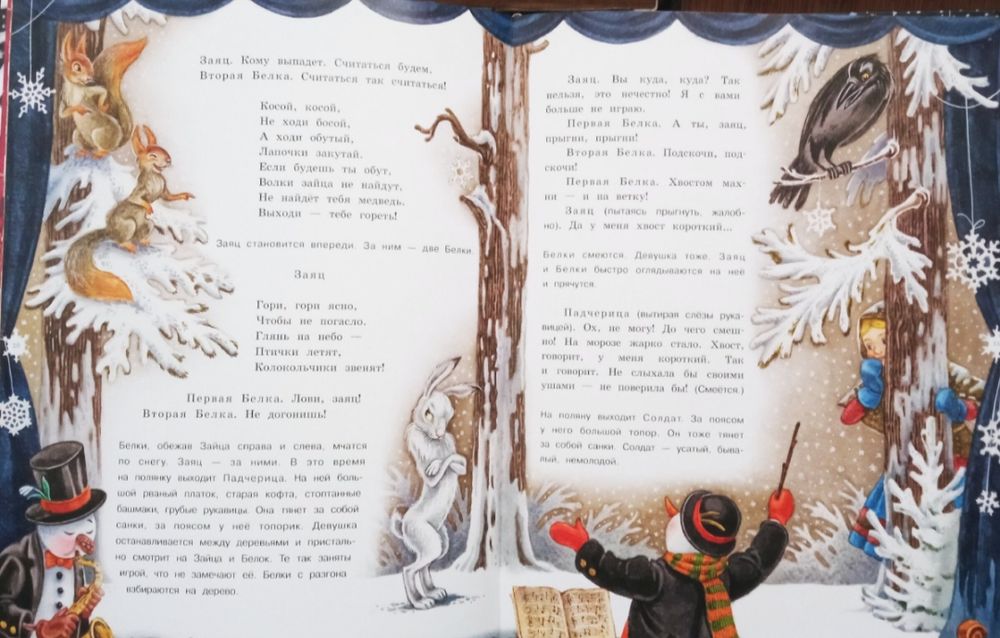 Заяц. Кому выпадет. Считаться будем.
Вторая Белка. Считаться так считаться!
Косой, косой,
Не ходи босой,
А ходи обутый,
Лапочки закутай.
Если будешь ты обут,
Волки зайца не найдут,
Не найдёт тебя медведь.
Выходи — тебе гореть!
Заяц становится впереди. За ним — две Белки.
Заяц
Гори, гори ясно,
Чтобы не погасло.
Глянь на небо —
Птички летят,
Колокольчики звенят!
Первая Белка. Лови, заяц!
Вторая Белка. Не догонишь!
Белки, обежав Зайца справа и слева, мчатся
по снегу. Заяц — за ними. В это время
на полянку выходит Падчерица. На ней боль-
шой рваный платок, старая кофта, стоптанные
башмаки, грубые рукавицы. Она тянет за собой
санки, за поясом у неё топорик. Девушка
останавливается между деревьями и присталь-
но смотрит на Зайца и Белок. Те так заняты
игрой, что не замечают её. Белки с разгона
взбираются на дерево.
Заяц. Вы куда, куда? Так
нельзя, это нечестно! Я с вами
больше не играю.
Первая Белка. А ты, заяц,
прыгни, прыгни!
Вторая Белка. Подскочи, под-
скочи!
Первая Белка. Хвостом мах-
ни — и на ветку!
Заяц (пытаясь прыгнуть, жалоб-
но). Да у меня хвост короткий...
Белки смеются. Девушка тоже. Заяц
и Белки быстро оглядываются на неё
и прячутся.
Падчерица (вытирая слёзы рука-
вицей). Ох, не могу! До чего смеш-
но! На морозе жарко стало. Хвост,
говорит, у меня короткий. Так
и говорит. Не слыхала бы своими
ушами — не поверила бы! (Смеётся.)
На поляну выходит Солдат. За поясом
у него большой топор. Он тоже тянет
за собой санки. Солдат — усатый, быва-
лый, немолодой.